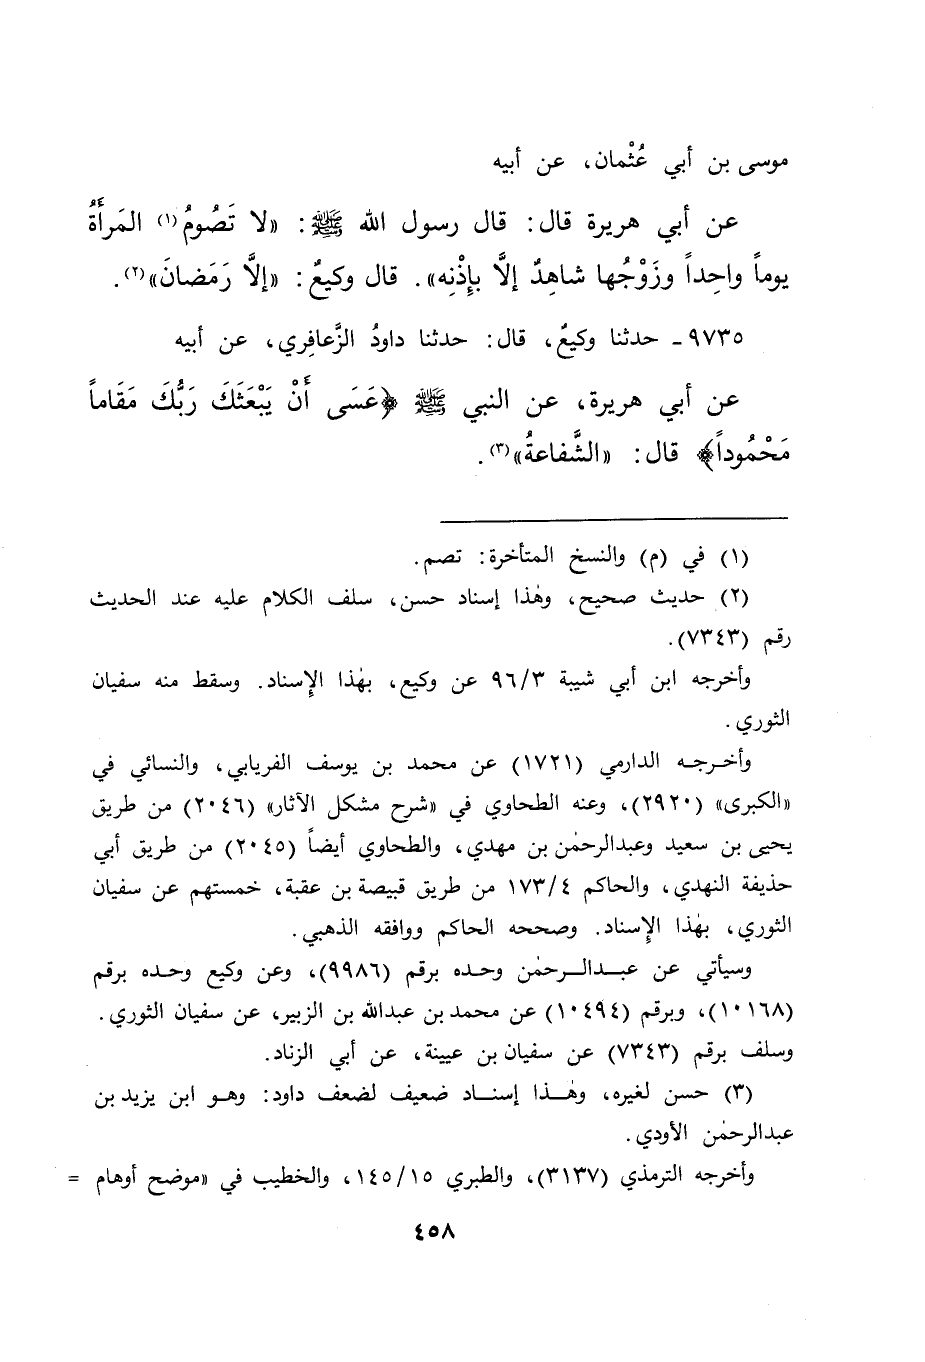 موسى بن أبي عُثْمان، عن أبيه
عن أبي هريرة قال: قال رسول الله ﷺ: «لا تَصُومُ(١) المَرأَةُ
يوماً واحِداً وزَوْجُها شاهِدٌ إلَّا بإِذْنِه». قال وكيعٌ: «إلَّا رَمَضانَ»(٢).
٩٧٣٥ـ حدثنا وكيعٌ، قال: حدثنا داودُ الزَّعافِري، عن أبيه
عن أبي هريرة، عن النبي ﷺ ﴿عَسَى أَنْ يَبْعَثَكَ رَبُّكَ مَقَاماً
مَحْمُوداً﴾ قال: «الشَّفاعةُ»(٣).
(١) في (م) والنسخ المتأخرة: تصم.
(٢) حديث صحيح، وهٰذا إسناد حسن، سلف الكلام عليه عند الحديث
رقم (٧٣٤٣).
وأخرجه ابن أبي شيبة ٩٦/٣ عن وكيع، بهٰذا الإسناد. وسقط منه سفيان
الثوري.
وأخرجه الدارمي (١٧٢١) عن محمد بن يوسف الفريابي، والنسائي في
«الكبرى» (٢٩٢٠)، وعنه الطحاوي في «شرح مشكل الآثار» (٢٠٤٦) من طريق
يحيى بن سعيد وعبدالرحمٰن بن مهدي، والطحاوي أيضاً (٢٠٤٥) من طريق أبي
حذيفة النهدي، والحاكم ١٧٣/٤ من طريق قبيصة بن عقبة، خمستهم عن سفيان
الثوري، بهٰذا الإسناد. وصححه الحاكم ووافقه الذهبي.
وسيأتي عن عبدالرحمٰن وحده برقم (٩٩٨٦)، وعن وكيع وحده برقم
(١٠١٦٨)، وبرقم (١٠٤٩٤) عن محمد بن عبدالله بن الزبير، عن سفيان الثوري.
وسلف برقم (٧٣٤٣) عن سفيان بن عيينة، عن أبي الزناد.
(٣) حسن لغيره، وهٰذا إسناد ضعيف لضعف داود: وهو ابن يزيد بن
عبدالرحمٰن الأودي.
وأخرجه الترمذي (٣١٣٧)، والطبري ١٤٥/١٥، والخطيب في «موضح أوهام =
٤٥٨